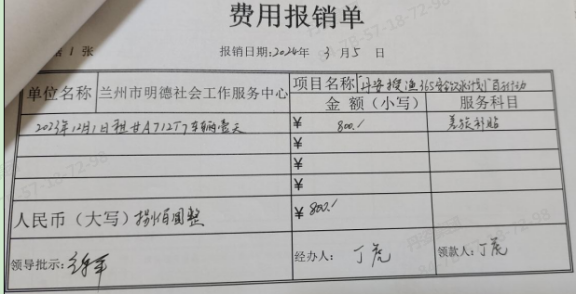 费用报销单
1 张
报销日期:2024年 3 月 5 日
单位名称 兰州市明德社会工作服务中心 项目名称 365安
金 额(小写) 服务科目
2023年12月1日租甘A712T7车辆壹天 ¥ 800./ 差旅补贴
¥
¥
¥
人民币(大写) 捌佰圆整 ¥ 800./
领导批示: 经办人: 丁虎 领款人: 丁虎